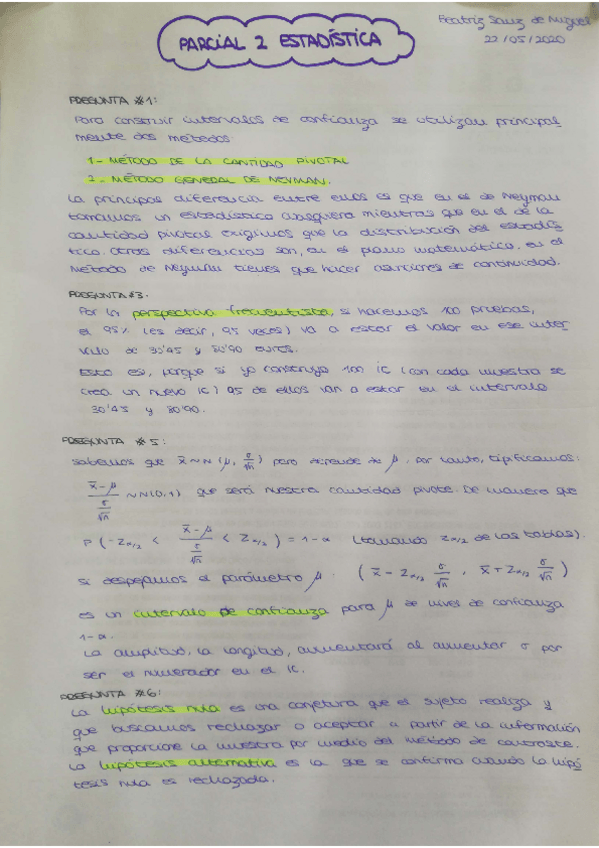 Beatriz Sanz de Miguel
22/05/2020
PARCIAL 2 ESTADÍSTICA
PREGUNTA #1:
Para construir intervalos de confianza se utilizan principal
mente dos métodos
1- MÉTODO DE LA CANTIDAD PIVOTAL
2- MÉTODO GENERAL DE NEYMAN.
La principal diferencia entre ellos es que en el de Neyman
tomamos un estadístico cualquiera mientras que en el de la
cantidad pivotal exigimos que la distribución del estadís
tico. Otras diferencias son, en el plano matemático, en el
Método de Neyman tienes que hacer asunciones de continuidad.
PREGUNTA #3.
Por la perspectiva frecuentista, si hacemos 100 pruebas,
el 95% (es decir, 95 veces) va a estar el valor en ese inter
valo de 30'45 y 80'90 euros.
Esto es, porque si yo construyo 100 IC (con cada muestra se
crea un nuevo IC) 95 de ellos van a estar en el intervalo
30'45 y 80'90.
PREGUNTA #5:
Sabemos que x̄ ~ N (μ, σ/√n) pero depende de μ. Por tanto, tipificamos:
(x̄ - μ)/(σ/√n) ~ N(0,1) que será nuestra cantidad pivote. De manera que
P (-Zα/2 < (x̄ - μ)/(σ/√n) < Zα/2) = 1-α (tomando Zα/2 de las tablas).
Si despejamos el parámetro μ: (x̄ - Zα/2 σ/√n, x̄ + Zα/2 σ/√n)
es un intervalo de confianza para μ de nivel de confianza
1-α.
La amplitud, la longitud, aumentará al aumentar σ por
ser el numerador en el IC.
PREGUNTA #6:
La hipótesis nula es una conjetura que el sujeto realiza y
que buscamos rechazar o aceptar a partir de la información
que proporcione la muestra por medio del método de contraste.
La hipótesis alternativa es la que se confirma cuando la hipó
tesis nula es rechazada.